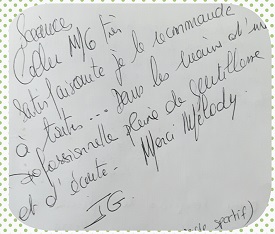 Séance
Cellu M6 très
satisfaisante je le recommande
à toutes... Dans les mains d'une
professionnelle pleine de gentillesse
et d'écoute. Merci Mélody.
IG
sportif)